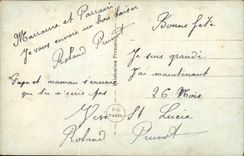 Marraine et Parrain
Je vous envoie un bon baiser
Roland Pruvot
Papa et maman s'ennuie
que tu n'écris pas
Bonne fête
Je suis grandi
J'ai maintenant
26 Mois
Vive St Lucie
Roland Pruvot